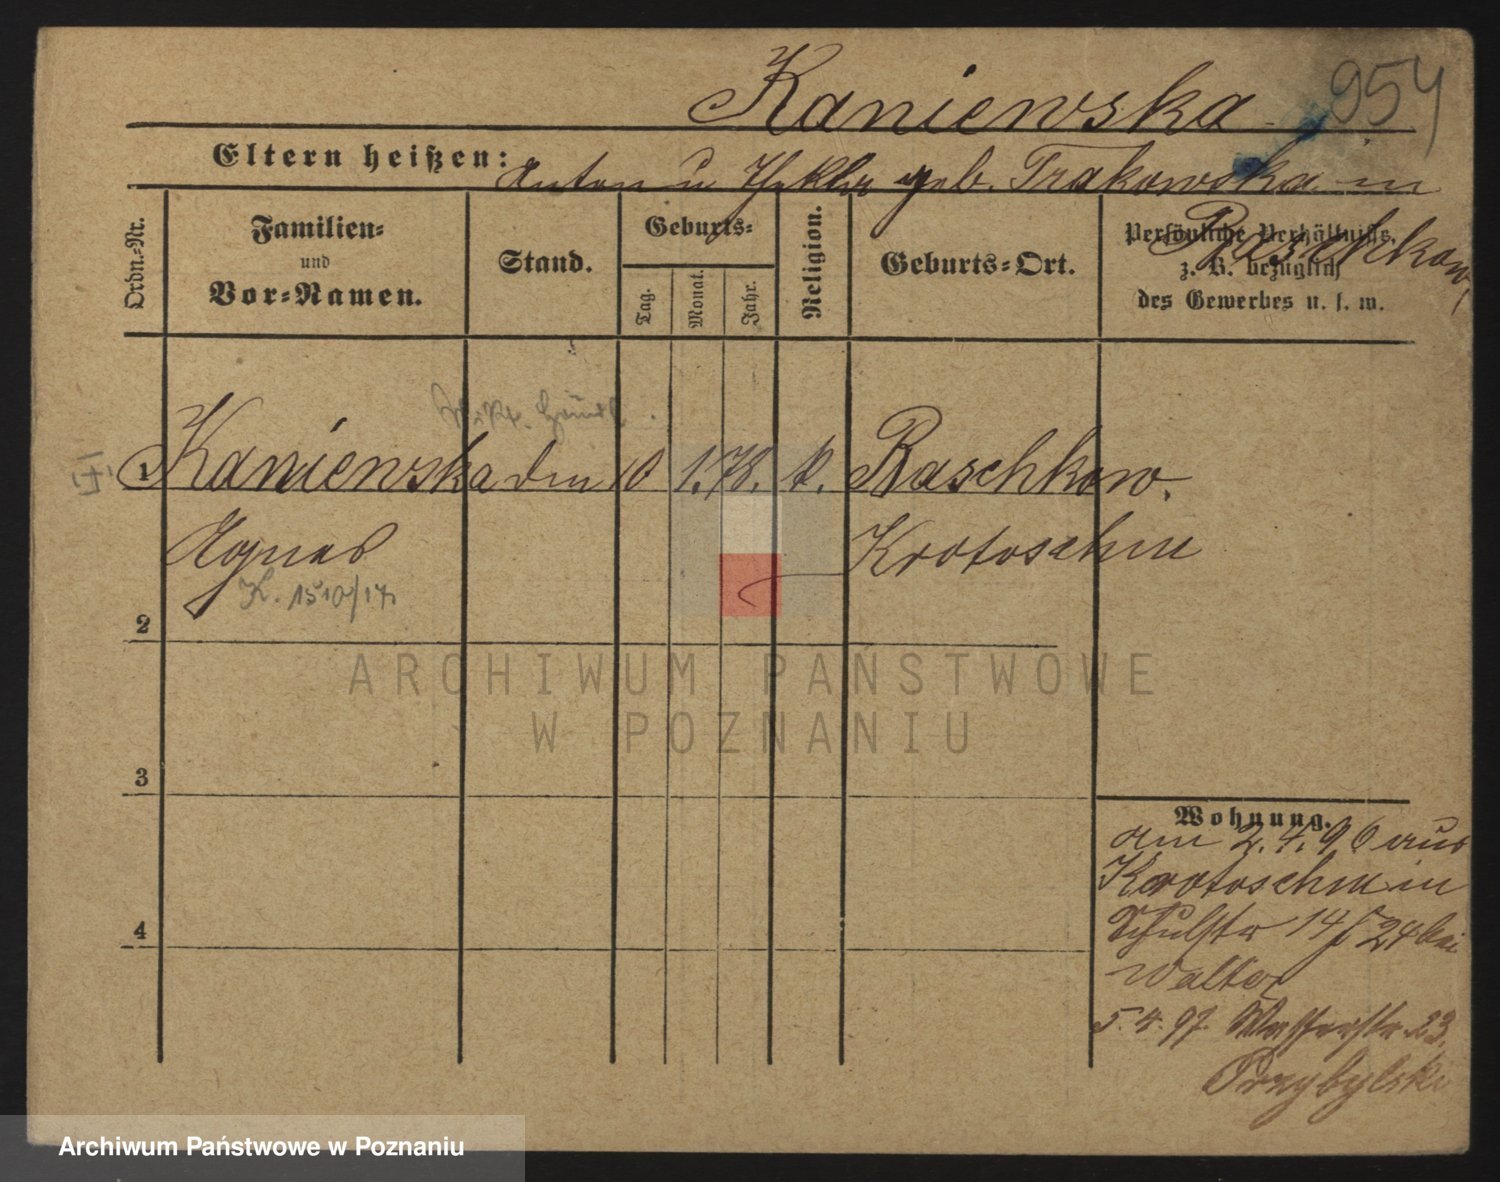 Kaniewska 954
Eltern heißen: Anton u Thekla geb. Trakowska in
Raschkow
Ordn.-Nr.
Familien-
und
Vor-Namen.
Stand.
Geburts-
Tag.
Monat.
Jahr.
Religion.
Geburts-Ort.
Persönliche Verhältnisse,
z. B. bezüglich
des Gewerbes u. s. w.
1 Kaniewska den 10 1. 78. k. Raschkow.
Agnes Krotoschin
K. 1510/17
2
3
4
Wohnung.
am 2.4.96 aus
Krotoschin in
Schulstr 14 24 bei
Walter
5.4.97. Wasserstr. 23.
Przybylski
ARCHIWUM PAŃSTWOWE
W POZNANIU
Archiwum Państwowe w Poznaniu